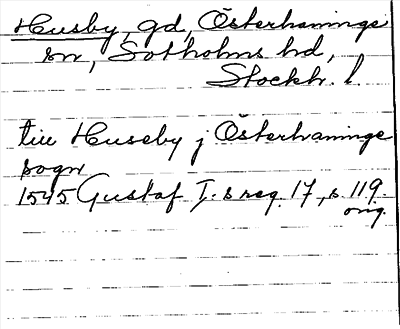 Husby, gd, Österhaninge
sn, Sotholms hd,
Stockh. l.
till Huseby j Österhaninge
sogn
1545 Gustaf I:s reg. 17, s. 119.
orig.